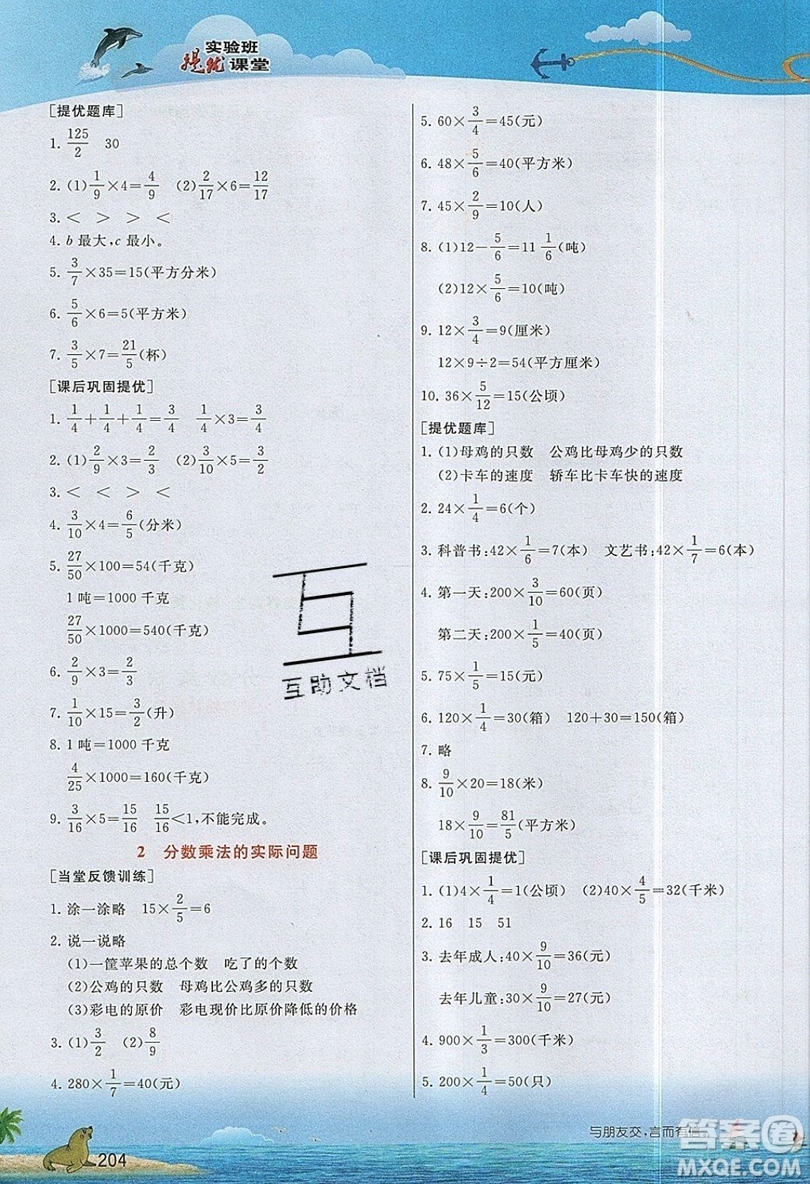 实验班
提优课堂
[提优题库]
1. 125/2 30
2. (1) 1/9×4=4/9 (2) 2/17×6=12/17
3. < > > <
4. b 最大,c 最小。
5. 3/7×35=15(平方分米)
6. 5/6×6=5(平方米)
7. 3/5×7=21/5(杯)
[课后巩固提优]
1. 1/4+1/4+1/4=3/4 1/4×3=3/4
2. (1) 2/9×3=2/3 (2) 3/10×5=3/2
3. < < > <
4. 3/10×4=6/5(分米)
5. 27/50×100=54(千克)
1吨=1000千克
27/50×1000=540(千克)
6. 2/9×3=2/3
7. 1/10×15=3/2(升)
8. 1吨=1000千克
4/25×1000=160(千克)
9. 3/16×5=15/16 15/16<1,不能完成。
2 分数乘法的实际问题
[当堂反馈训练]
1. 涂一涂略 15×2/5=6
2. 说一说略
(1)一筐苹果的总个数 吃了的个数
(2)公鸡的只数 母鸡比公鸡多的只数
(3)彩电的原价 彩电现价比原价降低的价格
3. (1) 3/2 (2) 8/9
4. 280×1/7=40(元)
5. 60×3/4=45(元)
6. 48×5/6=40(平方米)
7. 45×2/9=10(人)
8. (1)12-5/6=11 1/6(吨)
(2)12×5/6=10(吨)
9. 12×3/4=9(厘米)
12×9÷2=54(平方厘米)
10. 36×5/12=15(公顷)
[提优题库]
1. (1)母鸡的只数 公鸡比母鸡少的只数
(2)卡车的速度 轿车比卡车快的速度
2. 24×1/4=6(个)
3. 科普书:42×1/6=7(本) 文艺书:42×1/7=6(本)
4. 第一天:200×3/10=60(页)
第二天:200×1/5=40(页)
5. 75×1/5=15(元)
6. 120×1/4=30(箱) 120+30=150(箱)
7. 略
8. 9/10×20=18(米)
18×9/10=81/5(平方米)
[课后巩固提优]
1. (1)4×1/4=1(公顷) (2)40×4/5=32(千米)
2. 16 15 51
3. 去年成人:40×9/10=36(元)
去年儿童:30×9/10=27(元)
4. 900×1/3=300(千米)
5. 200×1/4=50(只)
互
互助文档
与朋友交,言而有
204
答案圈
MXQE.COM